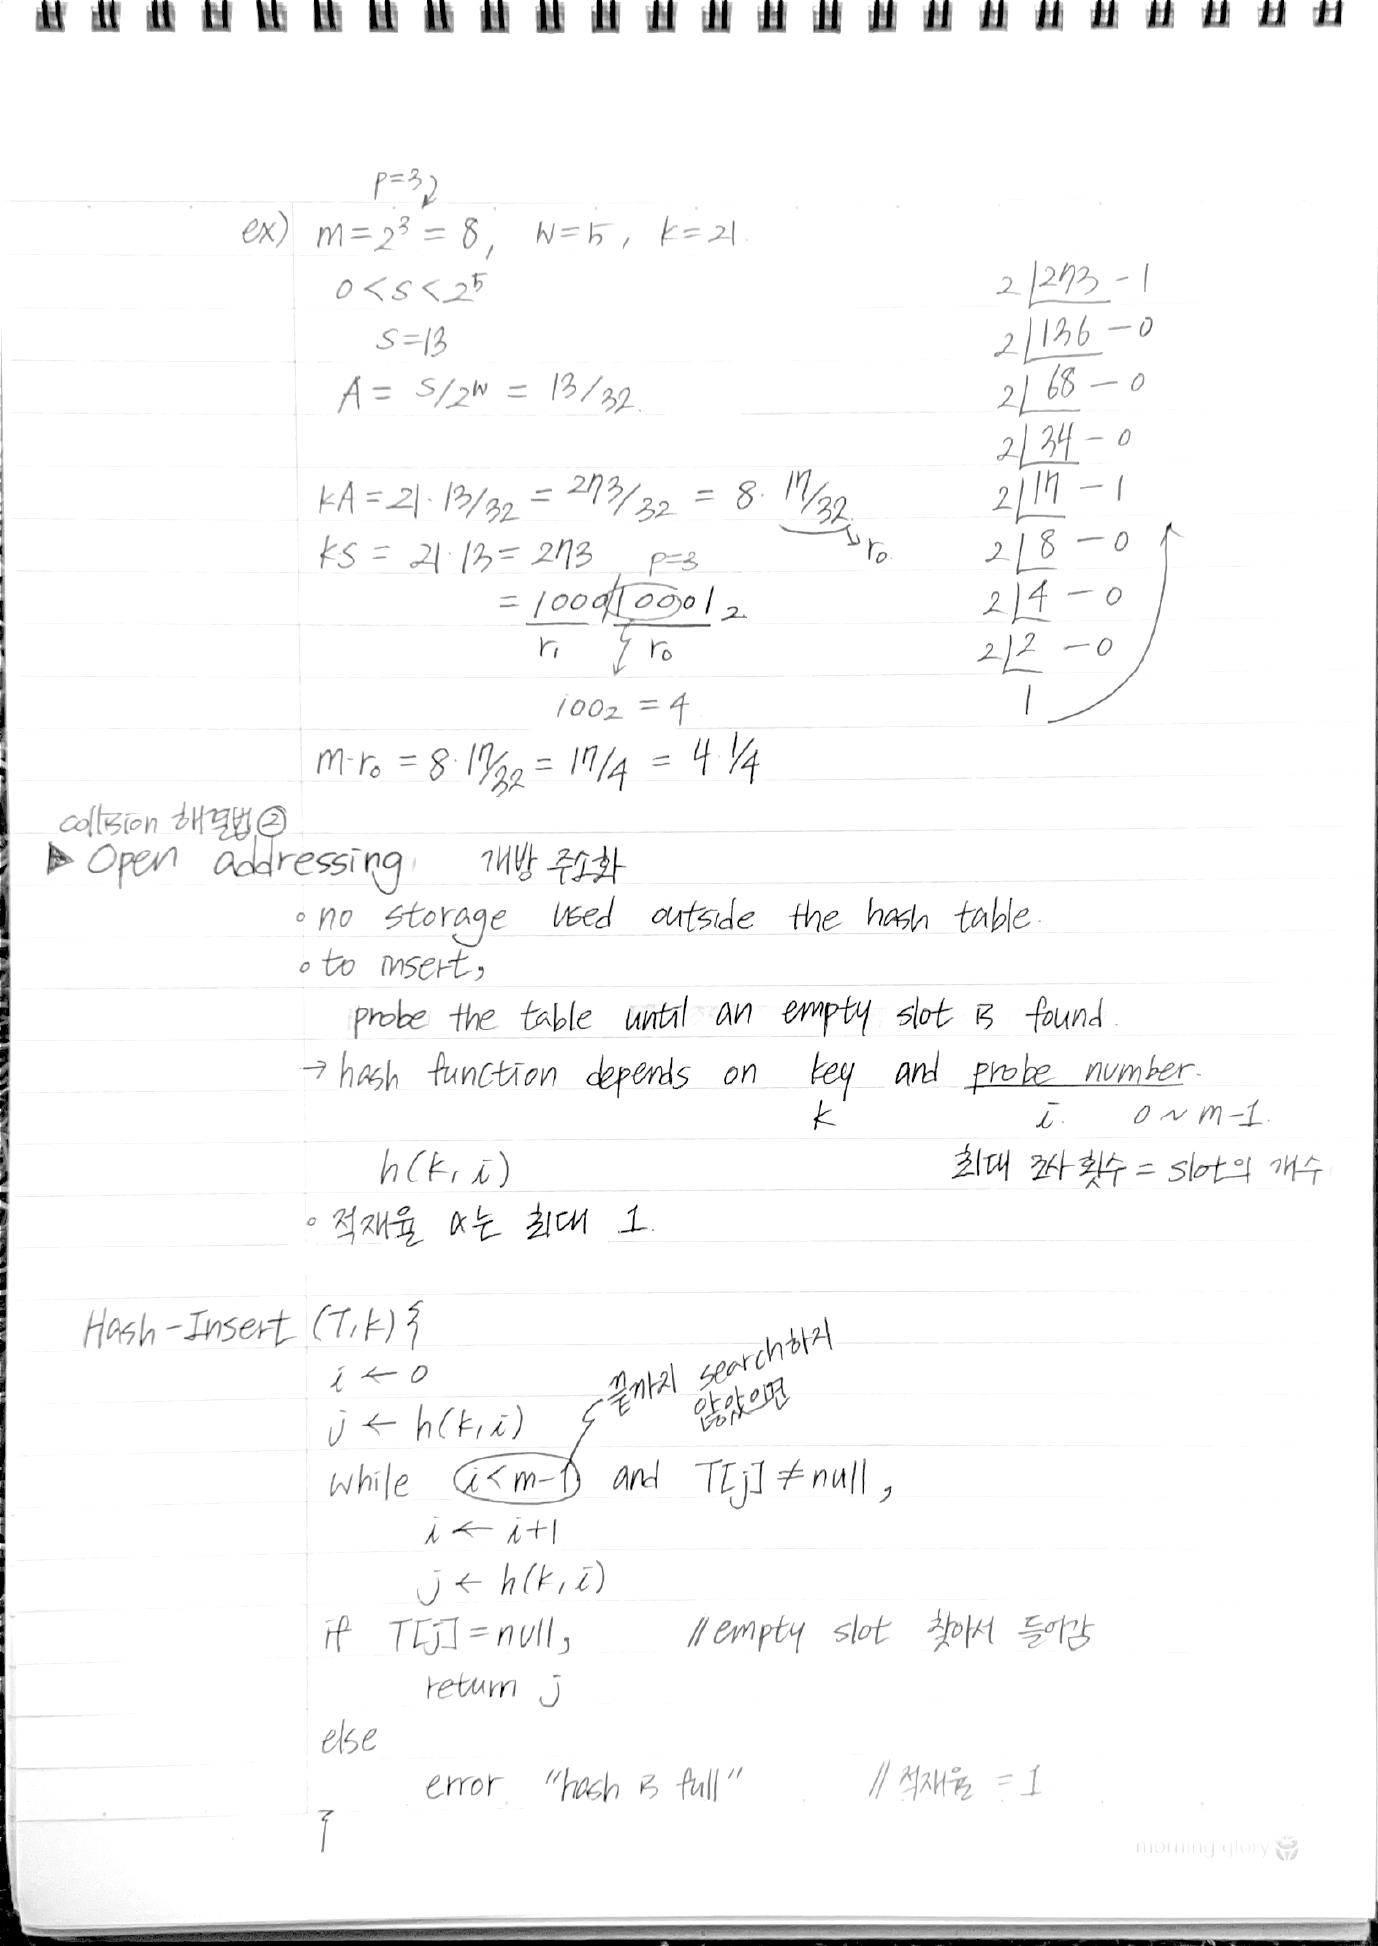 p=3
ex) m=2³=8, w=5, k=21.
0<s<2⁵
s=13
A = s/2ʷ = 13/32.
kA = 21·13/32 = 273/32 = 8·17/32. → r₀.
ks = 21·13 = 273
p=3
= 100010001₂
r₁ r₀
100₂ = 4
m·r₀ = 8·17/32 = 17/4 = 4·1/4
2 273 - 1
2 136 - 0
2 68 - 0
2 34 - 0
2 17 - 1
2 8 - 0
2 4 - 0
2 2 - 0
1
collision 해결법②
▶ Open addressing 개방 주소화
◦ no storage used outside the hash table.
◦ to insert,
probe the table until an empty slot is found.
→ hash function depends on key and probe number.
k i. 0 ~ m-1.
h(k, i) 최대 조사 횟수 = slot의 개수
◦ 적재율 α는 최대 1.
Hash-Insert (T,k) {
i ← 0
j ← h(k,i)
끝까지 search하지
않았으면
while i<m-1 and T[j] ≠ null,
i ← i+1
j ← h(k, i)
if T[j] = null, // empty slot 찾아서 들어감
return j
else
error "hash is full" // 적재율 = 1
}
morning glory